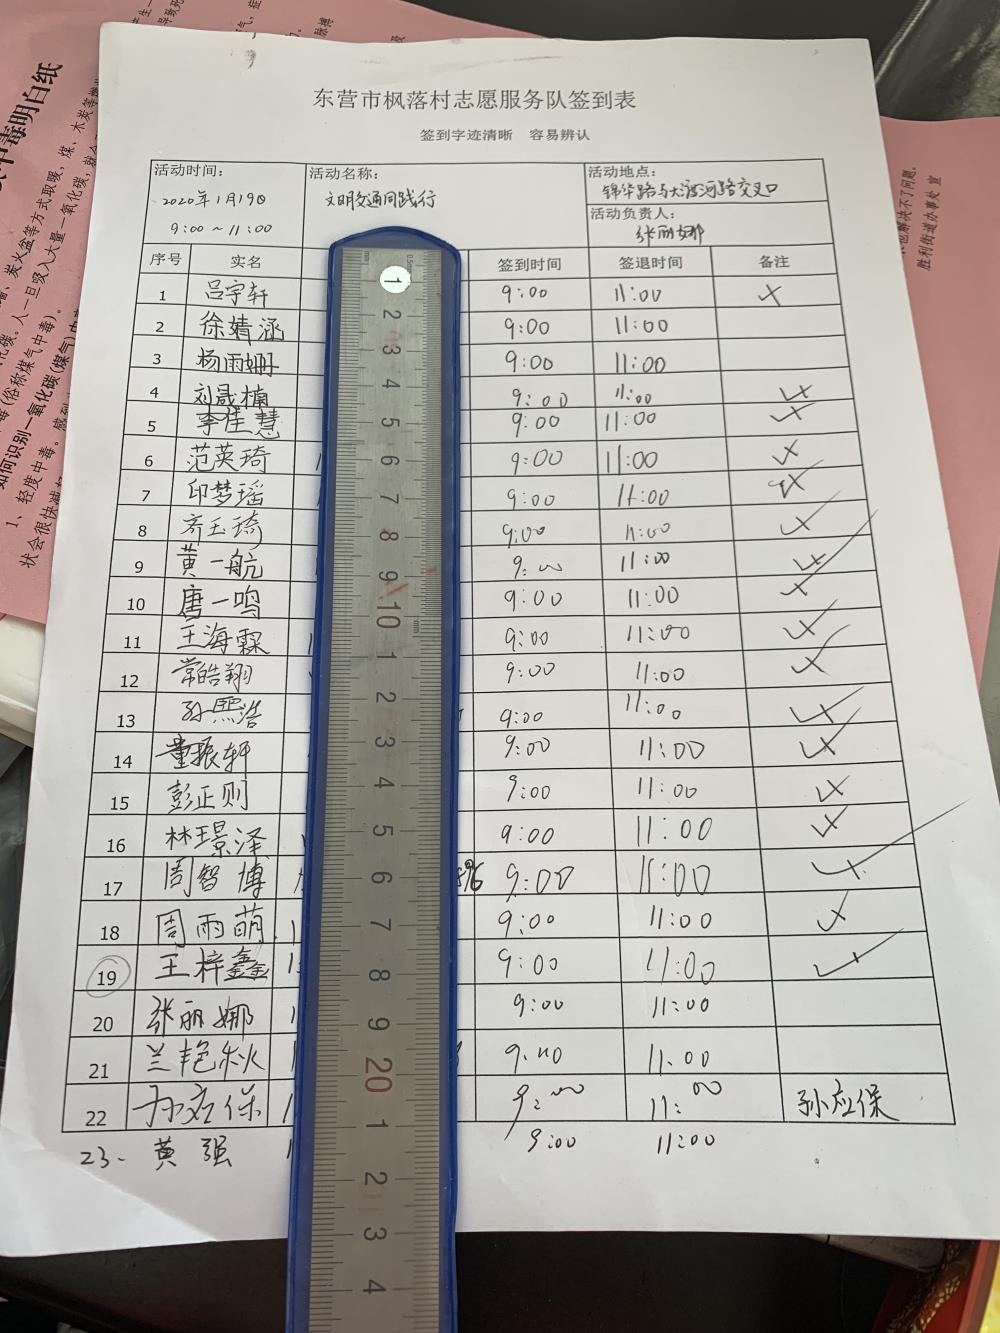 东营市枫落村志愿服务队签到表
签到字迹清晰 容易辨认
活动时间: 2020年1月19日 9:00～11:00
活动名称: 文明交通同践行
活动地点: 锦华路与大渡河路交叉口
活动负责人: 张丽娜
序号 实名 签到时间 签退时间 备注
1 吕宇轩 9:00 11:00
2 徐婧涵 9:00 11:00
3 杨雨姗 9:00 11:00
4 刘晟楠 9:00 11:00
5 李佳慧 9:00 11:00
6 范英琦 9:00 11:00
7 印梦瑶 9:00 11:00
8 齐玉琦 9:00 11:00
9 黄一航 9:00 11:00
10 唐一鸣 9:00 11:00
11 王海霖 9:00 11:00
12 常皓翔 9:00 11:00
13 孙熙浩 9:00 11:00
14 董振轩 9:00 11:00
15 彭正则 9:00 11:00
16 林璟泽 9:00 11:00
17 周智博 9:00 11:00
18 周雨萌 9:00 11:00
19 王梓鑫 9:00 11:00
20 张丽娜 9:00 11:00
21 兰艳秋 9:00 11:00
22 孙应保 9:00 11:00 孙应保
23. 黄强 9:00 11:00
mm 0.5mm
1 2 3 4 5 6 7 8 9 10 1 2 3 4 5 6 7 8 9 20 1 2 3 4
毒明白纸
如何识别一氧化碳(煤气)中毒
1、轻度中毒。
胜利街道办事处 宣